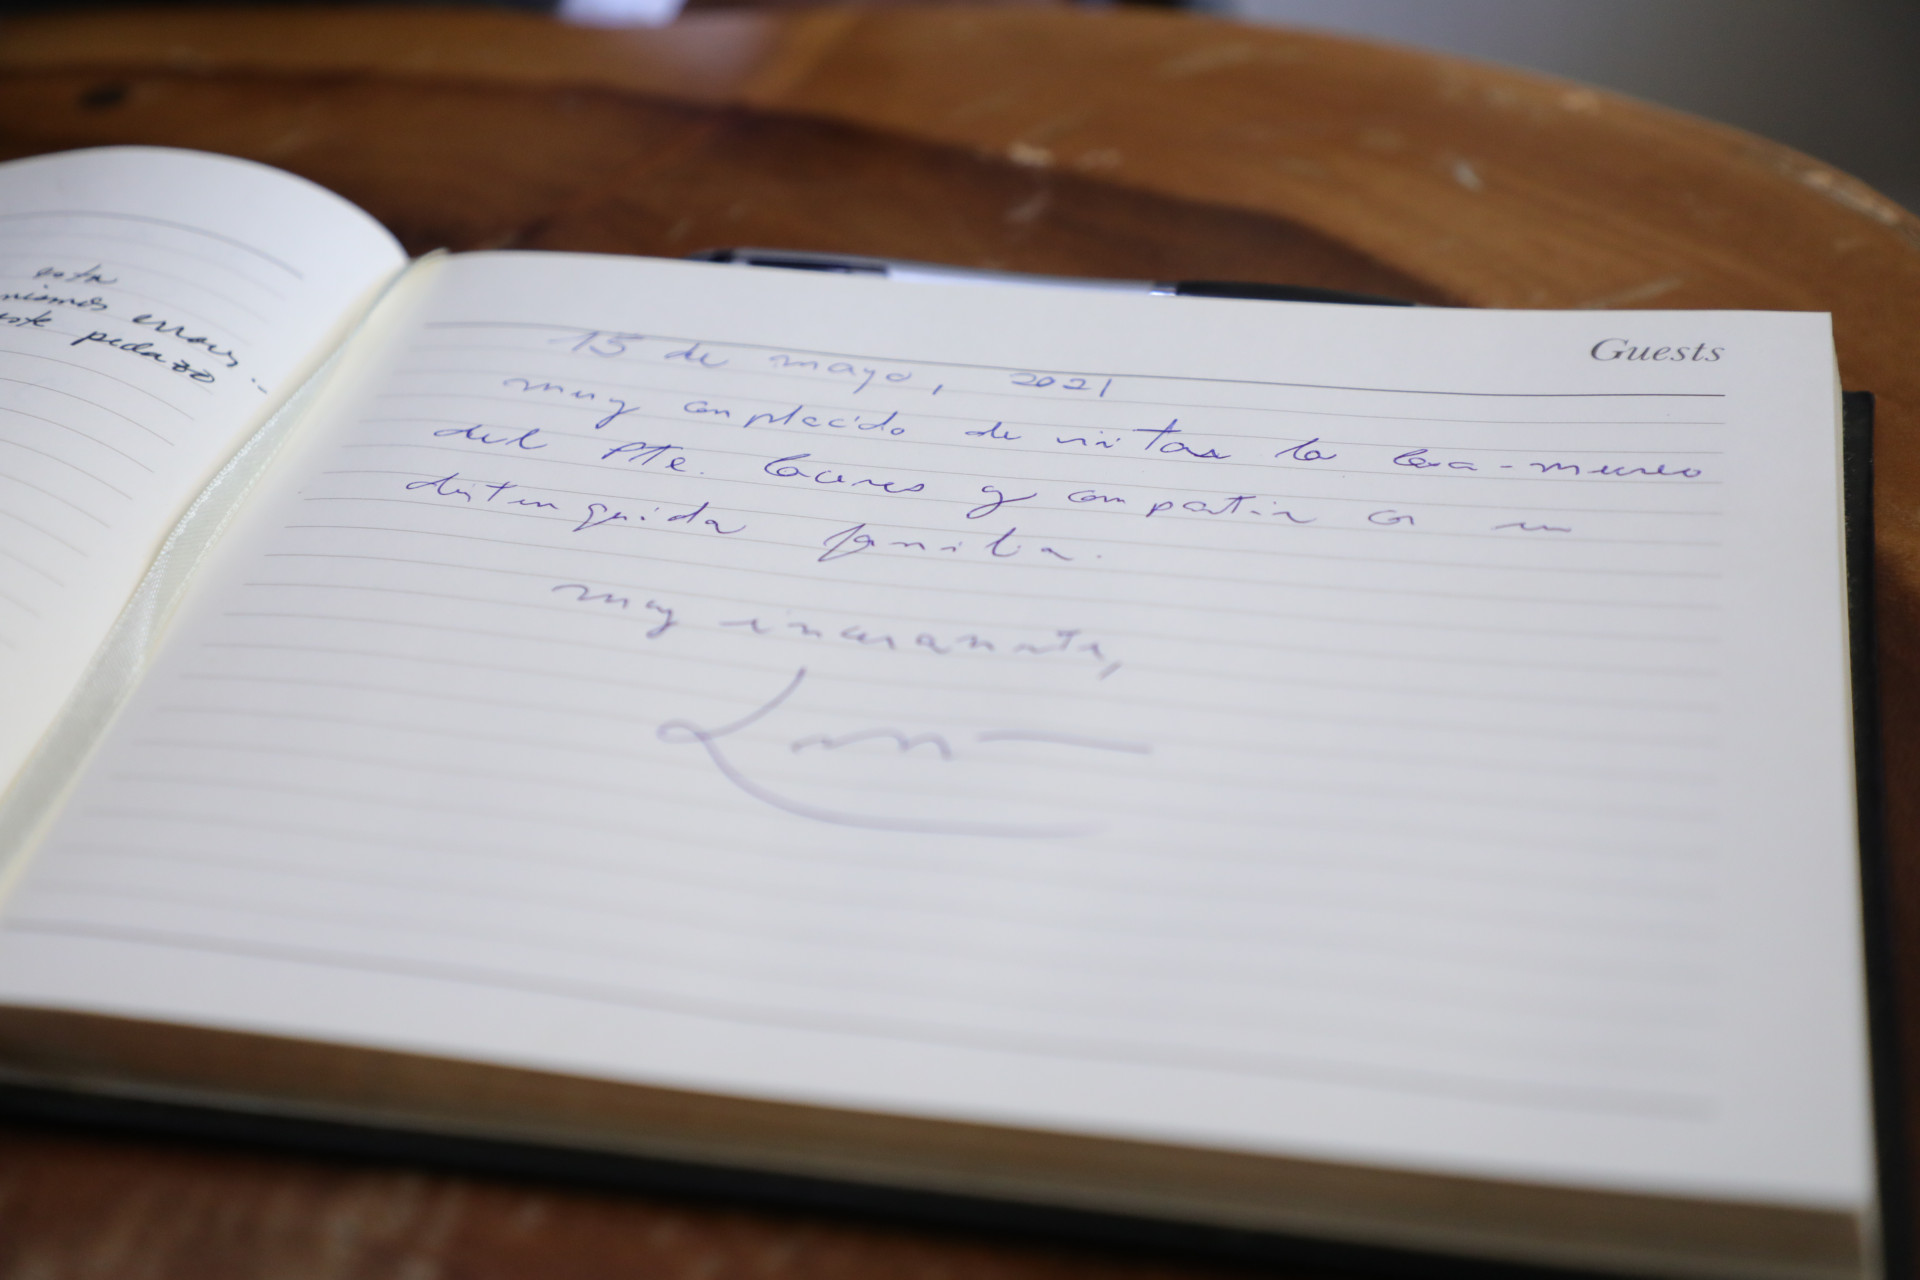 esta
mismos errores..
este pedazo
Guests
15 de mayo, 2021
muy complacido de visitar la casa-museo
del Pte. Cáceres y compartir con su
distinguida familia.
muy sinceramente,